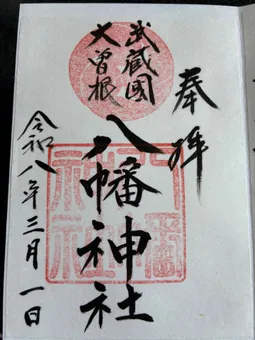 奉拝
武蔵國
大曽根
八幡神社
令和八年三月一日